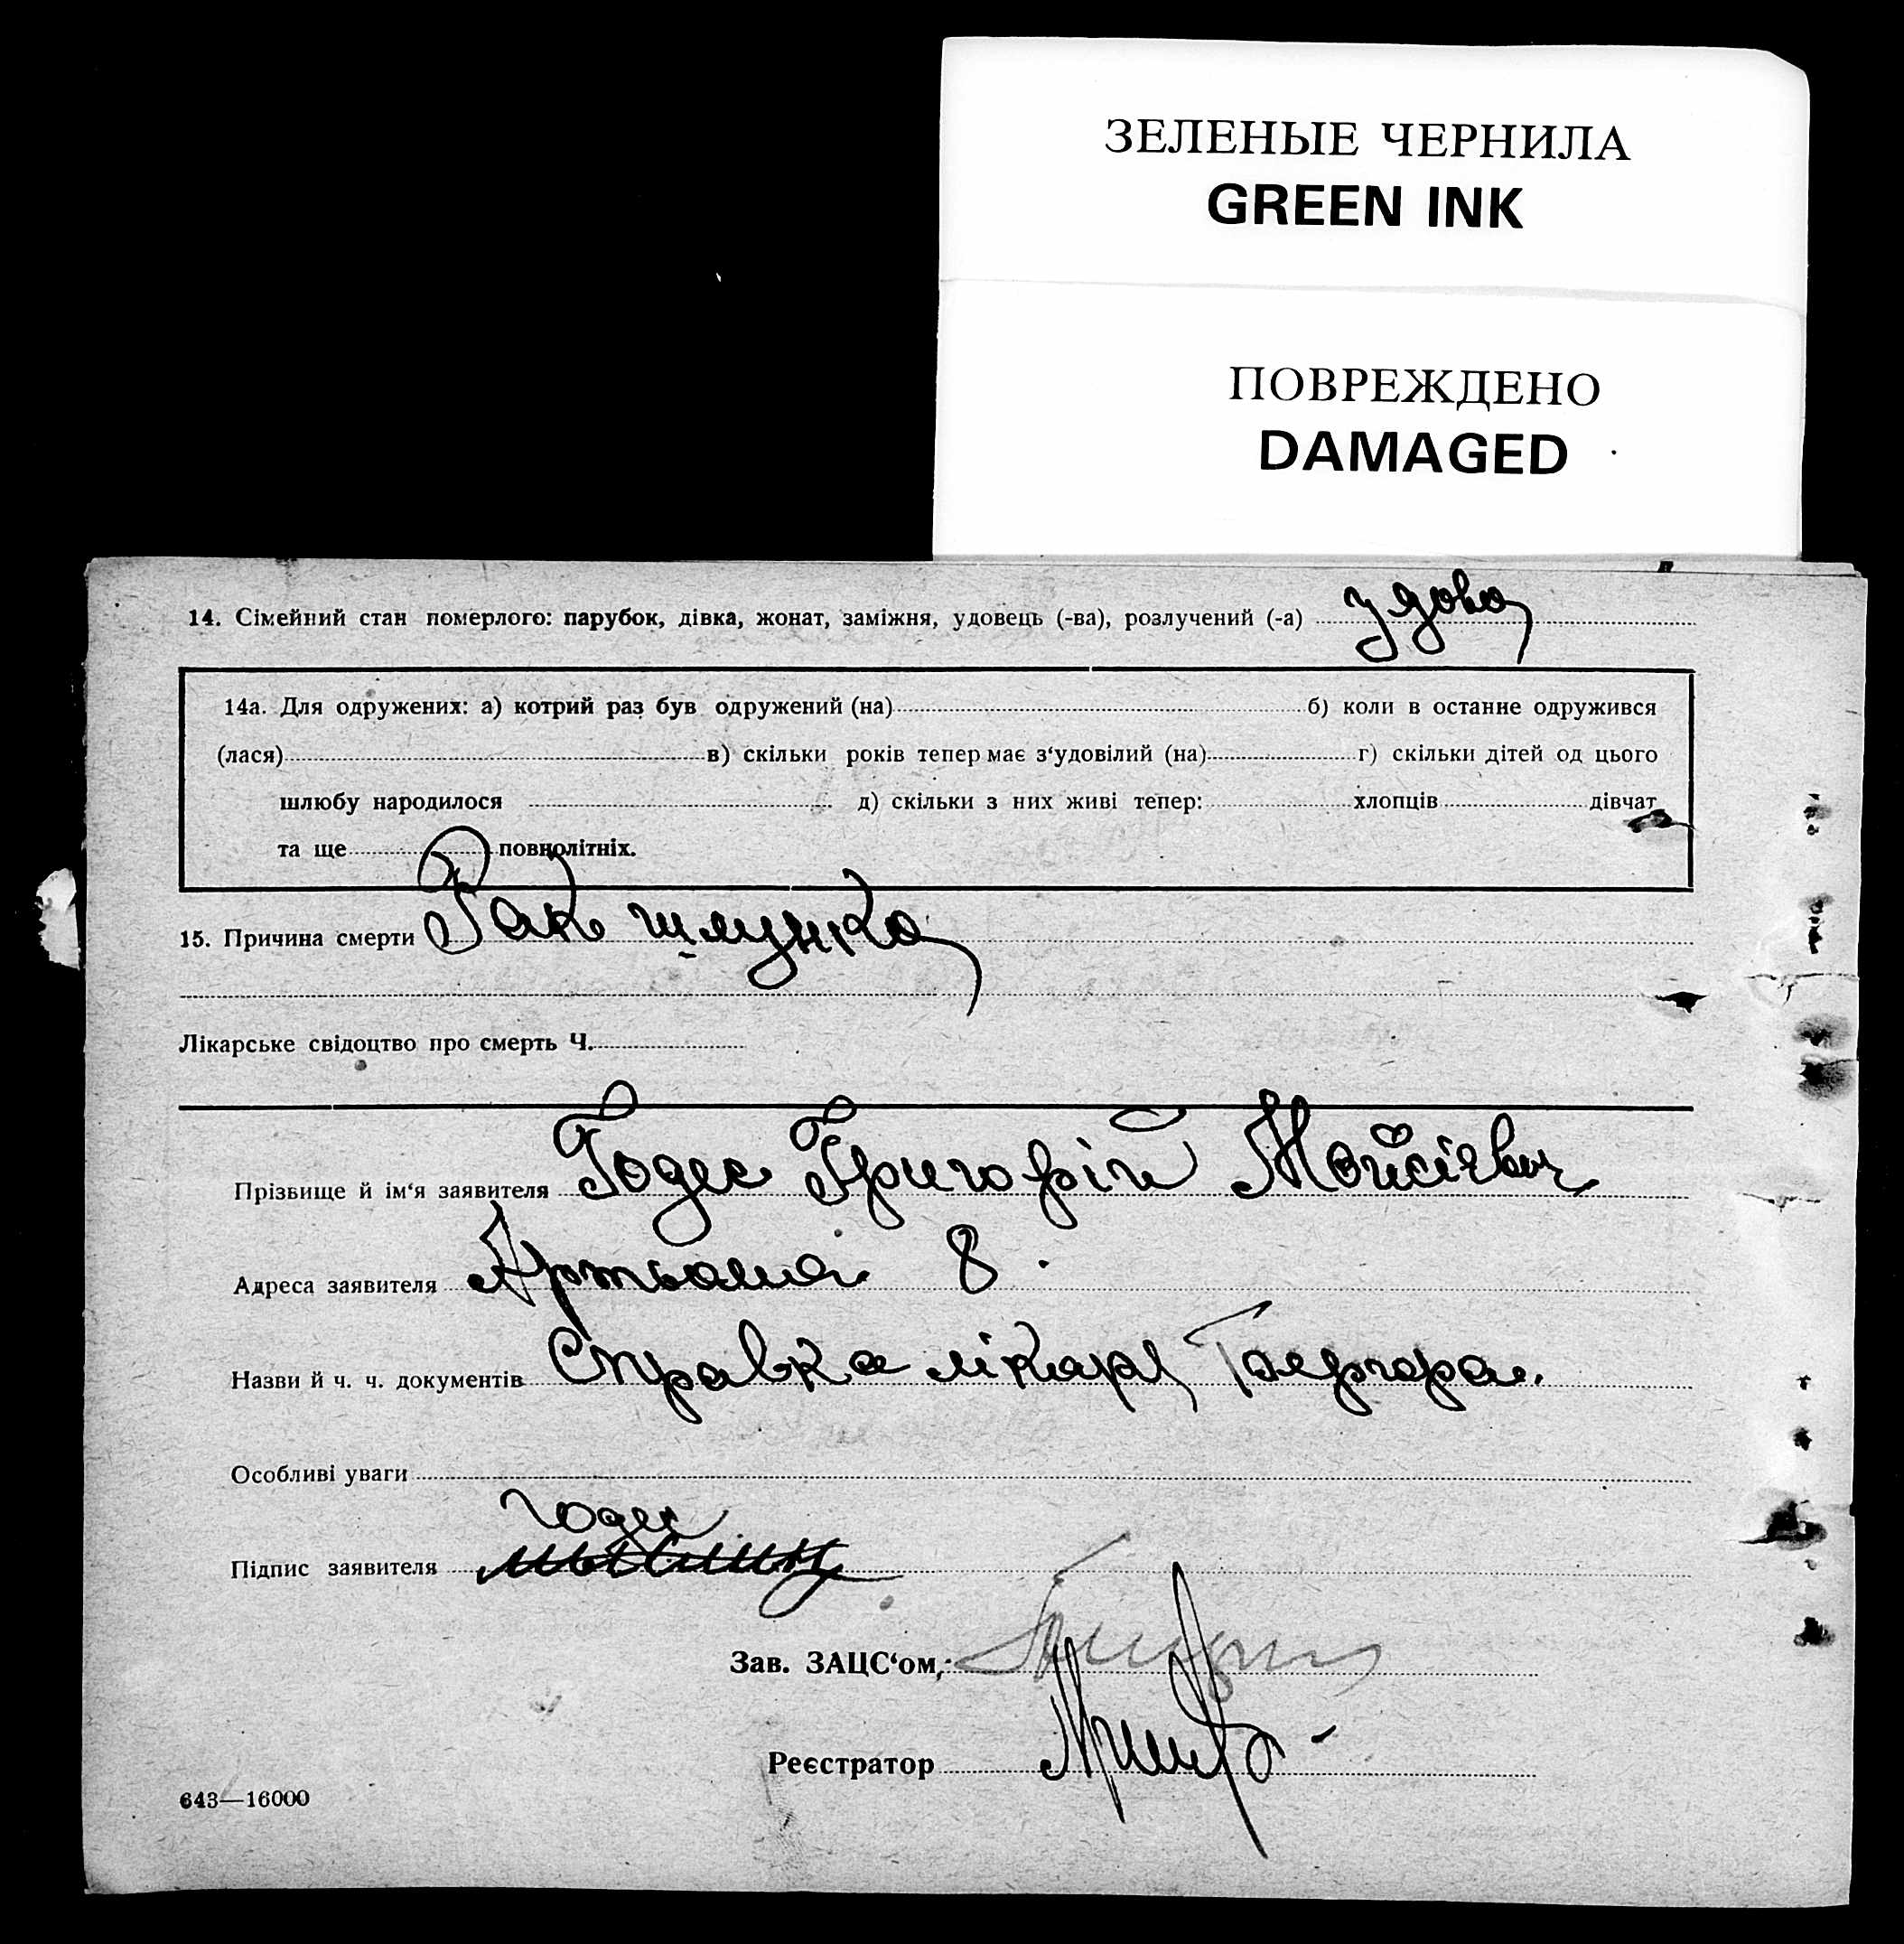 ЗЕЛЕНЫЕ ЧЕРНИЛА
GREEN INK
ПОВРЕЖДЕНО
DAMAGED
14. Сімейний стан померлого: парубок, дівка, жонат, заміжня, удовець (-ва), розлучений (-а) удова
14а. Для одружених: а) котрий раз був одружений (на) б) коли в останне одружився
(лася) в) скільки років тепер має з‘удовілий (на) г) скільки дітей од цього
шлюбу народилося д) скільки з них живі тепер: хлопців дівчат
та ще повнолітніх.
15. Причина смерти Рак шлунка
Лікарське свідоцтво про смерть Ч.
Прізвище й ім‘я заявителя Годес Григорій Мойсієвич
Адреса заявителя 8
Назви й ч. ч. документів Справка лікаря
Особливі уваги
Годес
Підпис заявителя
Зав. ЗАЦС‘ом,
Реєстратор
643—16000